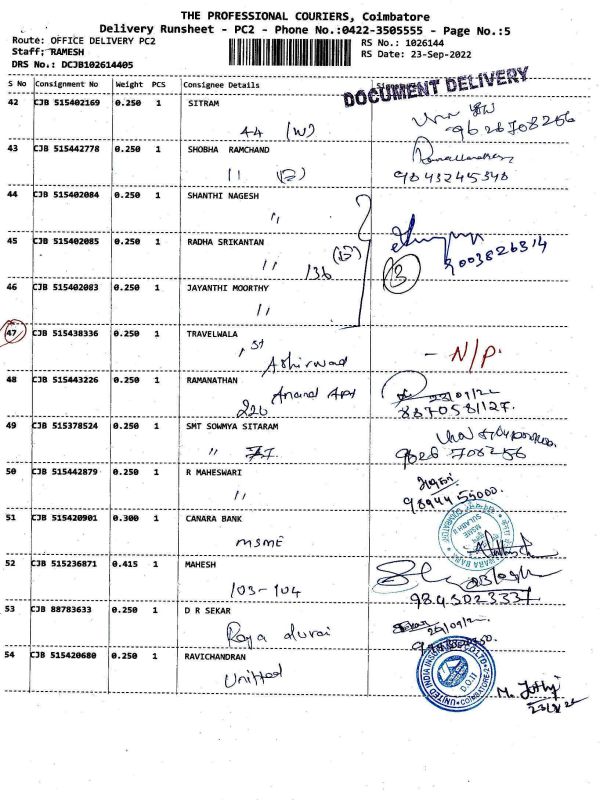 THE PROFESSIONAL COURIERS, Coimbatore
Delivery Runsheet - PC2 - Phone No.:0422-3505555 - Page No.:5
Route: OFFICE DELIVERY PC2
RS No.: 1026144
Staff: RAMESH
RS Date: 23-Sep-2022
DRS No.: DCJB102614405
S No Consignment No Weight PCS Consignee Details
DOCUMENT DELIVERY
42 CJB 515402169 0.250 1 SITRAM
44 (W)
9626708256
43 CJB 515442778 0.250 1 SHOBHA RAMCHAND
9843245348
44 CJB 515402084 0.250 1 SHANTHI NAGESH
45 CJB 515402085 0.250 1 RADHA SRIKANTAN
136
3
9003826314
46 CJB 515402083 0.250 1 JAYANTHI MOORTHY
47 CJB 515438336 0.250 1 TRAVELWALA
Ashirwad
- N/P.
48 CJB 515443226 0.250 1 RAMANATHAN
Anand Apt
226
8870581127.
49 CJB 515378524 0.250 1 SMT SOWMYA SITARAM
9626 708256
50 CJB 515442879 0.250 1 R MAHESWARI
9894455000.
51 CJB 515420901 0.300 1 CANARA BANK
MSME
52 CJB 515236871 0.415 1 MAHESH
103-104
9845023337
53 CJB 88783633 0.250 1 D R SEKAR
Raja durai
54 CJB 515420680 0.250 1 RAVICHANDRAN
United
UNITED INDIA INSURANCE CO. LTD
COIMBATORE
M. Jothi